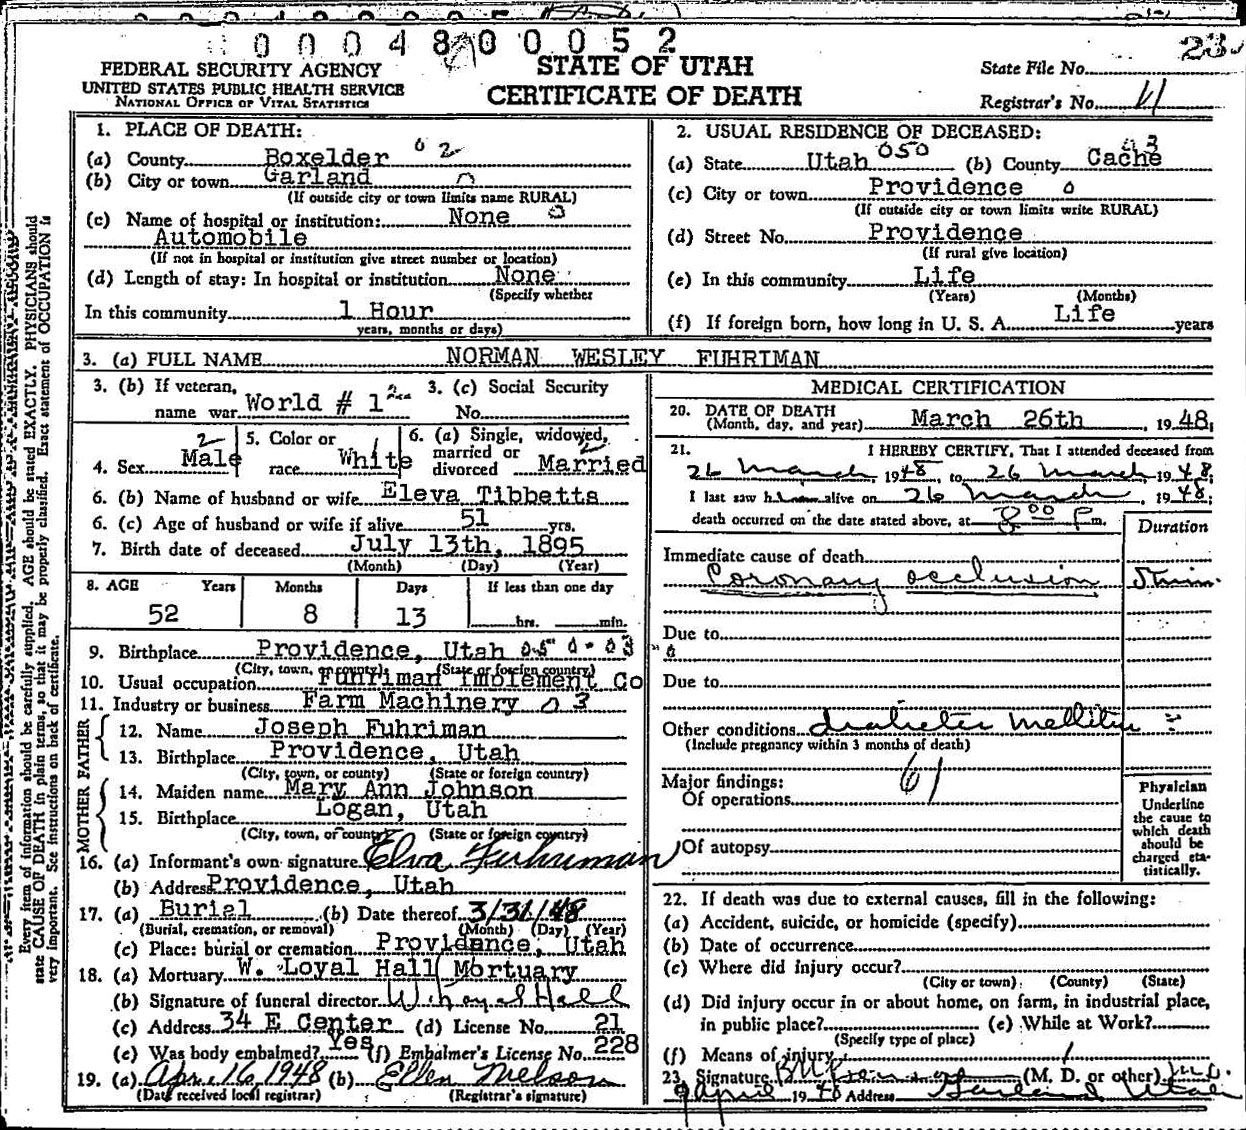 000480 00052
23
FEDERAL SECURITY AGENCY
UNITED STATES PUBLIC HEALTH SERVICE
NATIONAL OFFICE OF VITAL STATISTICS
STATE OF UTAH
CERTIFICATE OF DEATH
State File No.
Registrar's No. 41
Every item of information should be carefully supplied. AGE should be stated EXACTLY. PHYSICIANS should
state CAUSE OF DEATH in plain terms, so that it may be properly classified. Exact statement of OCCUPATION is
very important. See instructions on back of certificate.
1. PLACE OF DEATH:
(a) County Boxelder 02
(b) City or town Garland 0
(If outside city or town limits name RURAL)
(c) Name of hospital or institution: None 0
Automobile
(If not in hospital or institution give street number or location)
(d) Length of stay: In hospital or institution None
(Specify whether
In this community 1 Hour
years, months or days)
2. USUAL RESIDENCE OF DECEASED:
(a) State Utah 050 (b) County Cache 03
(c) City or town Providence 0
(If outside city or town limits write RURAL)
(d) Street No. Providence
(If rural give location)
(e) In this community Life
(Years) (Months)
(f) If foreign born, how long in U. S. A. Life years
3. (a) FULL NAME NORMAN WESLEY FUHRIMAN
3. (b) If veteran, name war World # 1
3. (c) Social Security No.
4. Sex Male 2
5. Color or race White 1
6. (a) Single, widowed, married or divorced Married 2
6. (b) Name of husband or wife Eleva Tibbetts
6. (c) Age of husband or wife if alive 51 yrs.
7. Birth date of deceased July 13th, 1895
(Month) (Day) (Year)
8. AGE Years Months Days If less than one day
52 8 13 hrs. min.
9. Birthplace Providence, Utah
(City, town, or county) (State or foreign country)
10. Usual occupation Fuhriman Implement Co
11. Industry or business Farm Machinery 03
FATHER
12. Name Joseph Fuhriman
13. Birthplace Providence, Utah
(City, town, or county) (State or foreign country)
MOTHER
14. Maiden name Mary Ann Johnson
15. Birthplace Logan, Utah
(City, town, or county) (State or foreign country)
16. (a) Informant's own signature Elva Fuhriman
(b) Address Providence, Utah
17. (a) Burial (b) Date thereof 3/31/48
(Burial, cremation, or removal) (Month) (Day) (Year)
(c) Place: burial or cremation Providence, Utah
18. (a) Mortuary W. Loyal Hall Mortuary
(b) Signature of funeral director W. Loyal Hall
(c) Address 34 E Center (d) License No. 21
(e) Was body embalmed? Yes (f) Embalmer's License No. 228
19. (a) Apr. 16, 1948 (b) Ellen Nelson
(Date received local registrar) (Registrar's signature)
MEDICAL CERTIFICATION
20. DATE OF DEATH
(Month, day, and year) March 26th, 1948;
21. I HEREBY CERTIFY, That I attended deceased from
26 March, 1948, to 26 March, 1948;
I last saw him alive on 26 March, 1948;
death occurred on the date stated above, at 8:00 P m.
Duration
Immediate cause of death
Coronary occlusion
Due to
Due to
Other conditions diabetes mellitus ?
(Include pregnancy within 3 months of death)
61
Major findings:
Of operations
Of autopsy
Physician
Underline
the cause to
which death
should be
charged sta-
tistically.
22. If death was due to external causes, fill in the following:
(a) Accident, suicide, or homicide (specify)
(b) Date of occurrence
(c) Where did injury occur?
(City or town) (County) (State)
(d) Did injury occur in or about home, on farm, in industrial place,
in public place? (e) While at Work?
(Specify type of place)
(f) Means of injury
23. Signature (M. D. or other) M.D.
9 April 1948 Address Garland Utah